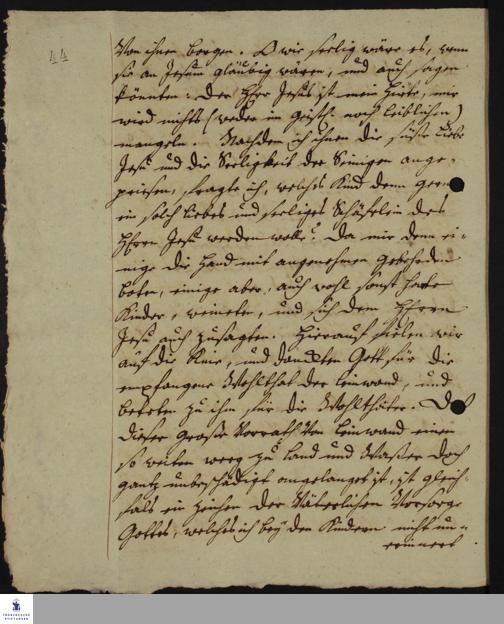 44
Von ihnen borgen. O wie seelig wäre es, wenn
sie an Jesum gläubig wären, und auch sagen
könnten: Der Herr Jesus ist mein Hirte, mir
wird nichts (weder im Geistl: noch leiblichen)
mangeln. Nachdem ich ihnen die süße Liebe
Jesu und die Seeligkeit der Seinigen ange-
priesen, fragte ich, welches Kind denn gern
ein solch liebes und seeliges Schäfelein des
Herrn Jesu werden wolle? Da mir denn ei-
nige die Hand mit angenehmen Geberden
boten, einige aber, auch wohl sonst harte
Kinder, weineten, und sich dem Herrn
Jesu auch zusagten. Hierauf fielen wir
auf die Knie, und danckten Gott für die
empfangene Wohlthat der Leinwand, und
beteten zu ihm für die Wohlthäter. Daß
dieser große Vorrath von Leinwand einen
so weiten weeg zu Land und Waßer doch
gantz unbeschädigt angelanget ist, ist gleich-
fals ein Zeichen der Väterlichen Vorsorge
Gottes, welches ich bey den Kindern nicht un-
erinnert
FRANCKESCHE
STIFTUNGEN